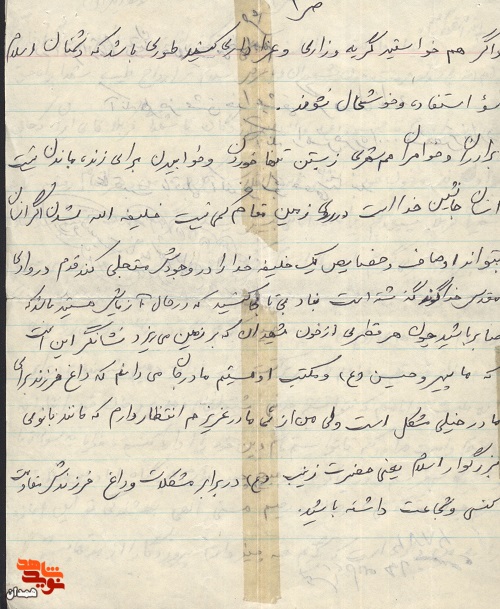 واگر هم خواستید گریه وزاری و عزاداری کنید طوری باشد که دشمنان اسلام
سؤ استفاده وخوشحال نشوند.
برادران وخواهران هم شهری زیستن تنها خوردن وخوابیدن برای زنده ماندن نیست
انسان جانشین خدا است در روی زمین مقام کمی نیست خلیفه الله شدن اگر انسان
بتواند اوصاف وخصایص یک خلیفه خدا را در وجودش متجلی کند قدم در وادی
مقدس خداگونه گذشته است نباد بی تابی کنید که در حال آزمایش هستید بلکه
صابر باشید چون هر قطره ای از خون شهیدان که بر زمین می ریزد نشانگر این است
که ما پیرو حسین (ع) ومکتب او هستیم مادرجان می دانم که داغ فرزند برای
مادر خیلی مشکل است ولی من از شما مادر عزیزم انتظار دارم که مانند بانوی
بزرگوار اسلام یعنی حضرت زینب (س) در برابر مشکلات وداغ فرزندش مقاومت
کنی وشجاعت داشته باشید.
شاهد
نوید
همدان